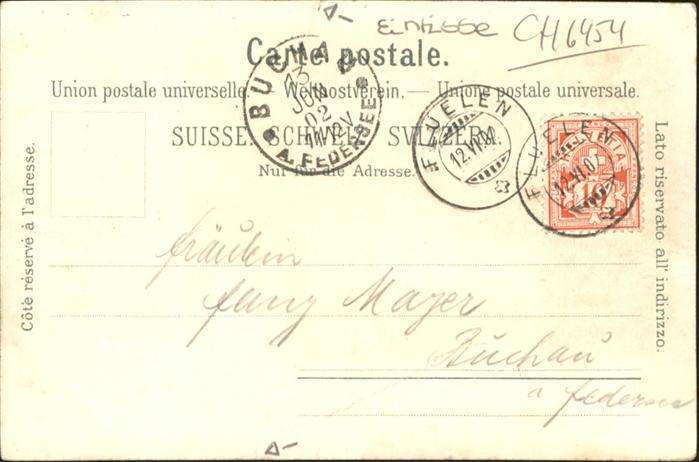 CH6454
Carte postale.
Union postale universelle. — Weltpostverein. — Unione postale universale.
SUISSE. SCHWEIZ. SVIZZERA.
Nur für die Adresse.
Côté réservé à l'adresse.
Lato riservato all' indirizzo.
BUCHAU
13
JUN
02
11-12V
A. FEDERSEE
FLUELEN
12.VI.02
FLUELEN
12.VI.02
HELVETIA
10
Fräulein
Fany Mayer
Buchau
a Federsee